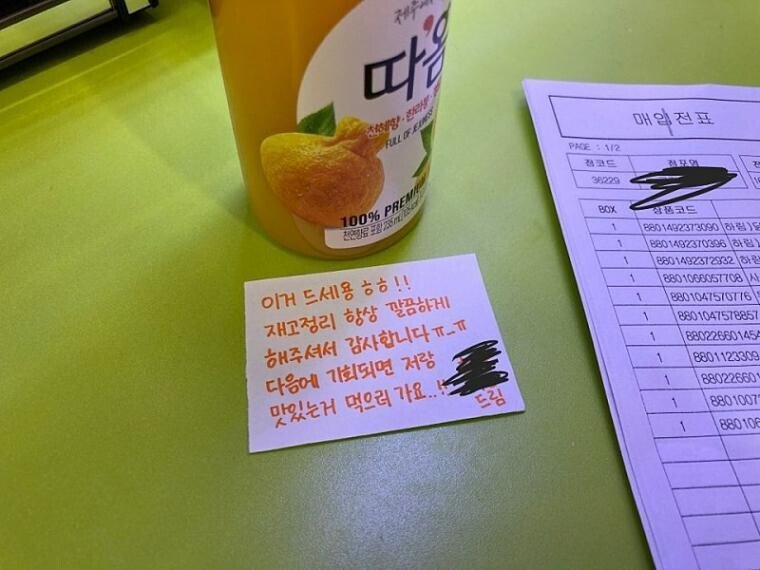 따옴
천혜향·한라봉
FULL OF JEJUNESS
100% PREMIUM
이거 드세용 ㅎㅎ!!
재고정리 항상 깔끔하게
해주셔서 감사합니다ㅠ_ㅠ
다음에 기회되면 저랑
맛있는거 먹으러 가요..!!
드림
매입전표
PAGE : 1/2
점코드 점포명
36229
BOX 상품코드
1 8801492373090 하림)
1 8801492370396 하림)
1 8801492372932 하림
1 8801066057708 사
1 8801047570776
1 8801047578857
1 880226601454
1 8801123309
1 88022660
1 8801007
1 88010